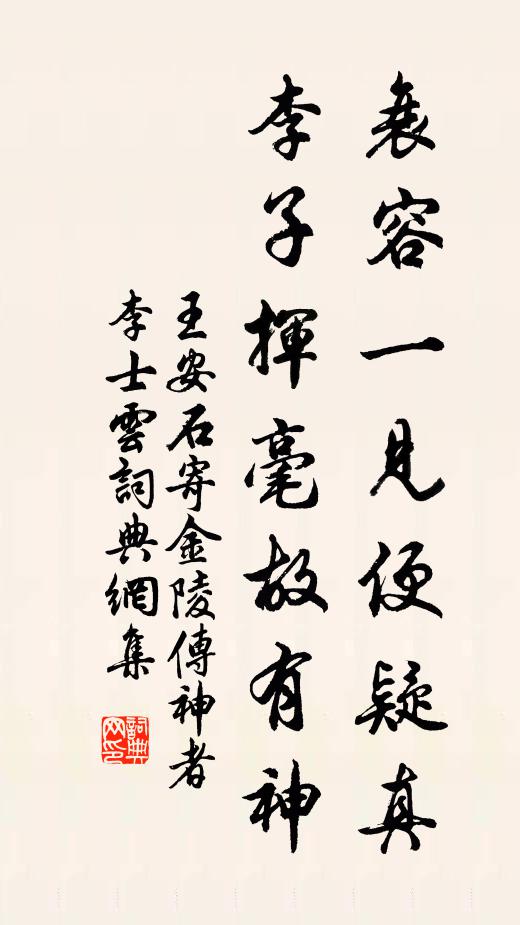 衰容一見便疑真
李子揮毫故有神
王安石寄金陵傳神者
李士雲詞典網集
詞典
网印